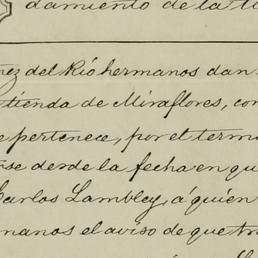 damiento de la ti
nez del Río hermanos dan
tienda de Miraflores, con
e pertenece, por el termi
rse desde la fecha en qu
Carlos Lambley, á quien
manos el aviso de que tra